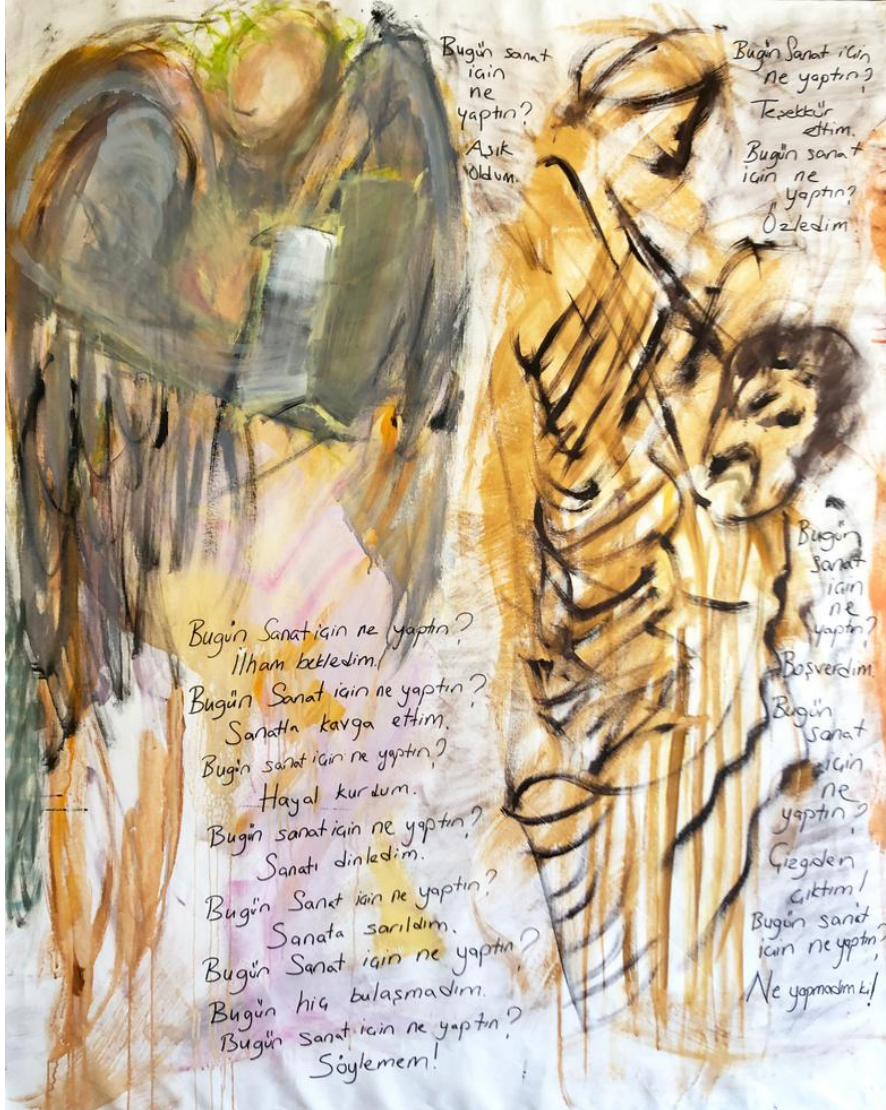 Bugün sanat
için
ne
yaptın?
Aşık
Oldum.
Bugün Sanat için
ne yaptın?
Teşekkür
ettim.
Bugün sanat
için ne
yaptın?
Özledim.
Bugün Sanat için ne yaptın?
İlham bekledim.
Bugün Sanat için ne yaptın?
Sanatla kavga ettim.
Bugün sanat için ne yaptın?
Hayal kurdum.
Bugün sanat için ne yaptın?
Sanatı dinledim.
Bugün Sanat için ne yaptın?
Sanata sarıldım.
Bugün Sanat için ne yaptın?
Bugün hiç bulaşmadım.
Bugün sanat için ne yaptın?
Söylemem!
Bugün
Sanat
için
ne
yaptın?
Boşverdim.
Bugün
sanat
için
ne
yaptın?
Çizgiden
çıktım!
Bugün sanat
için ne yaptın?
Ne yapmadım ki!